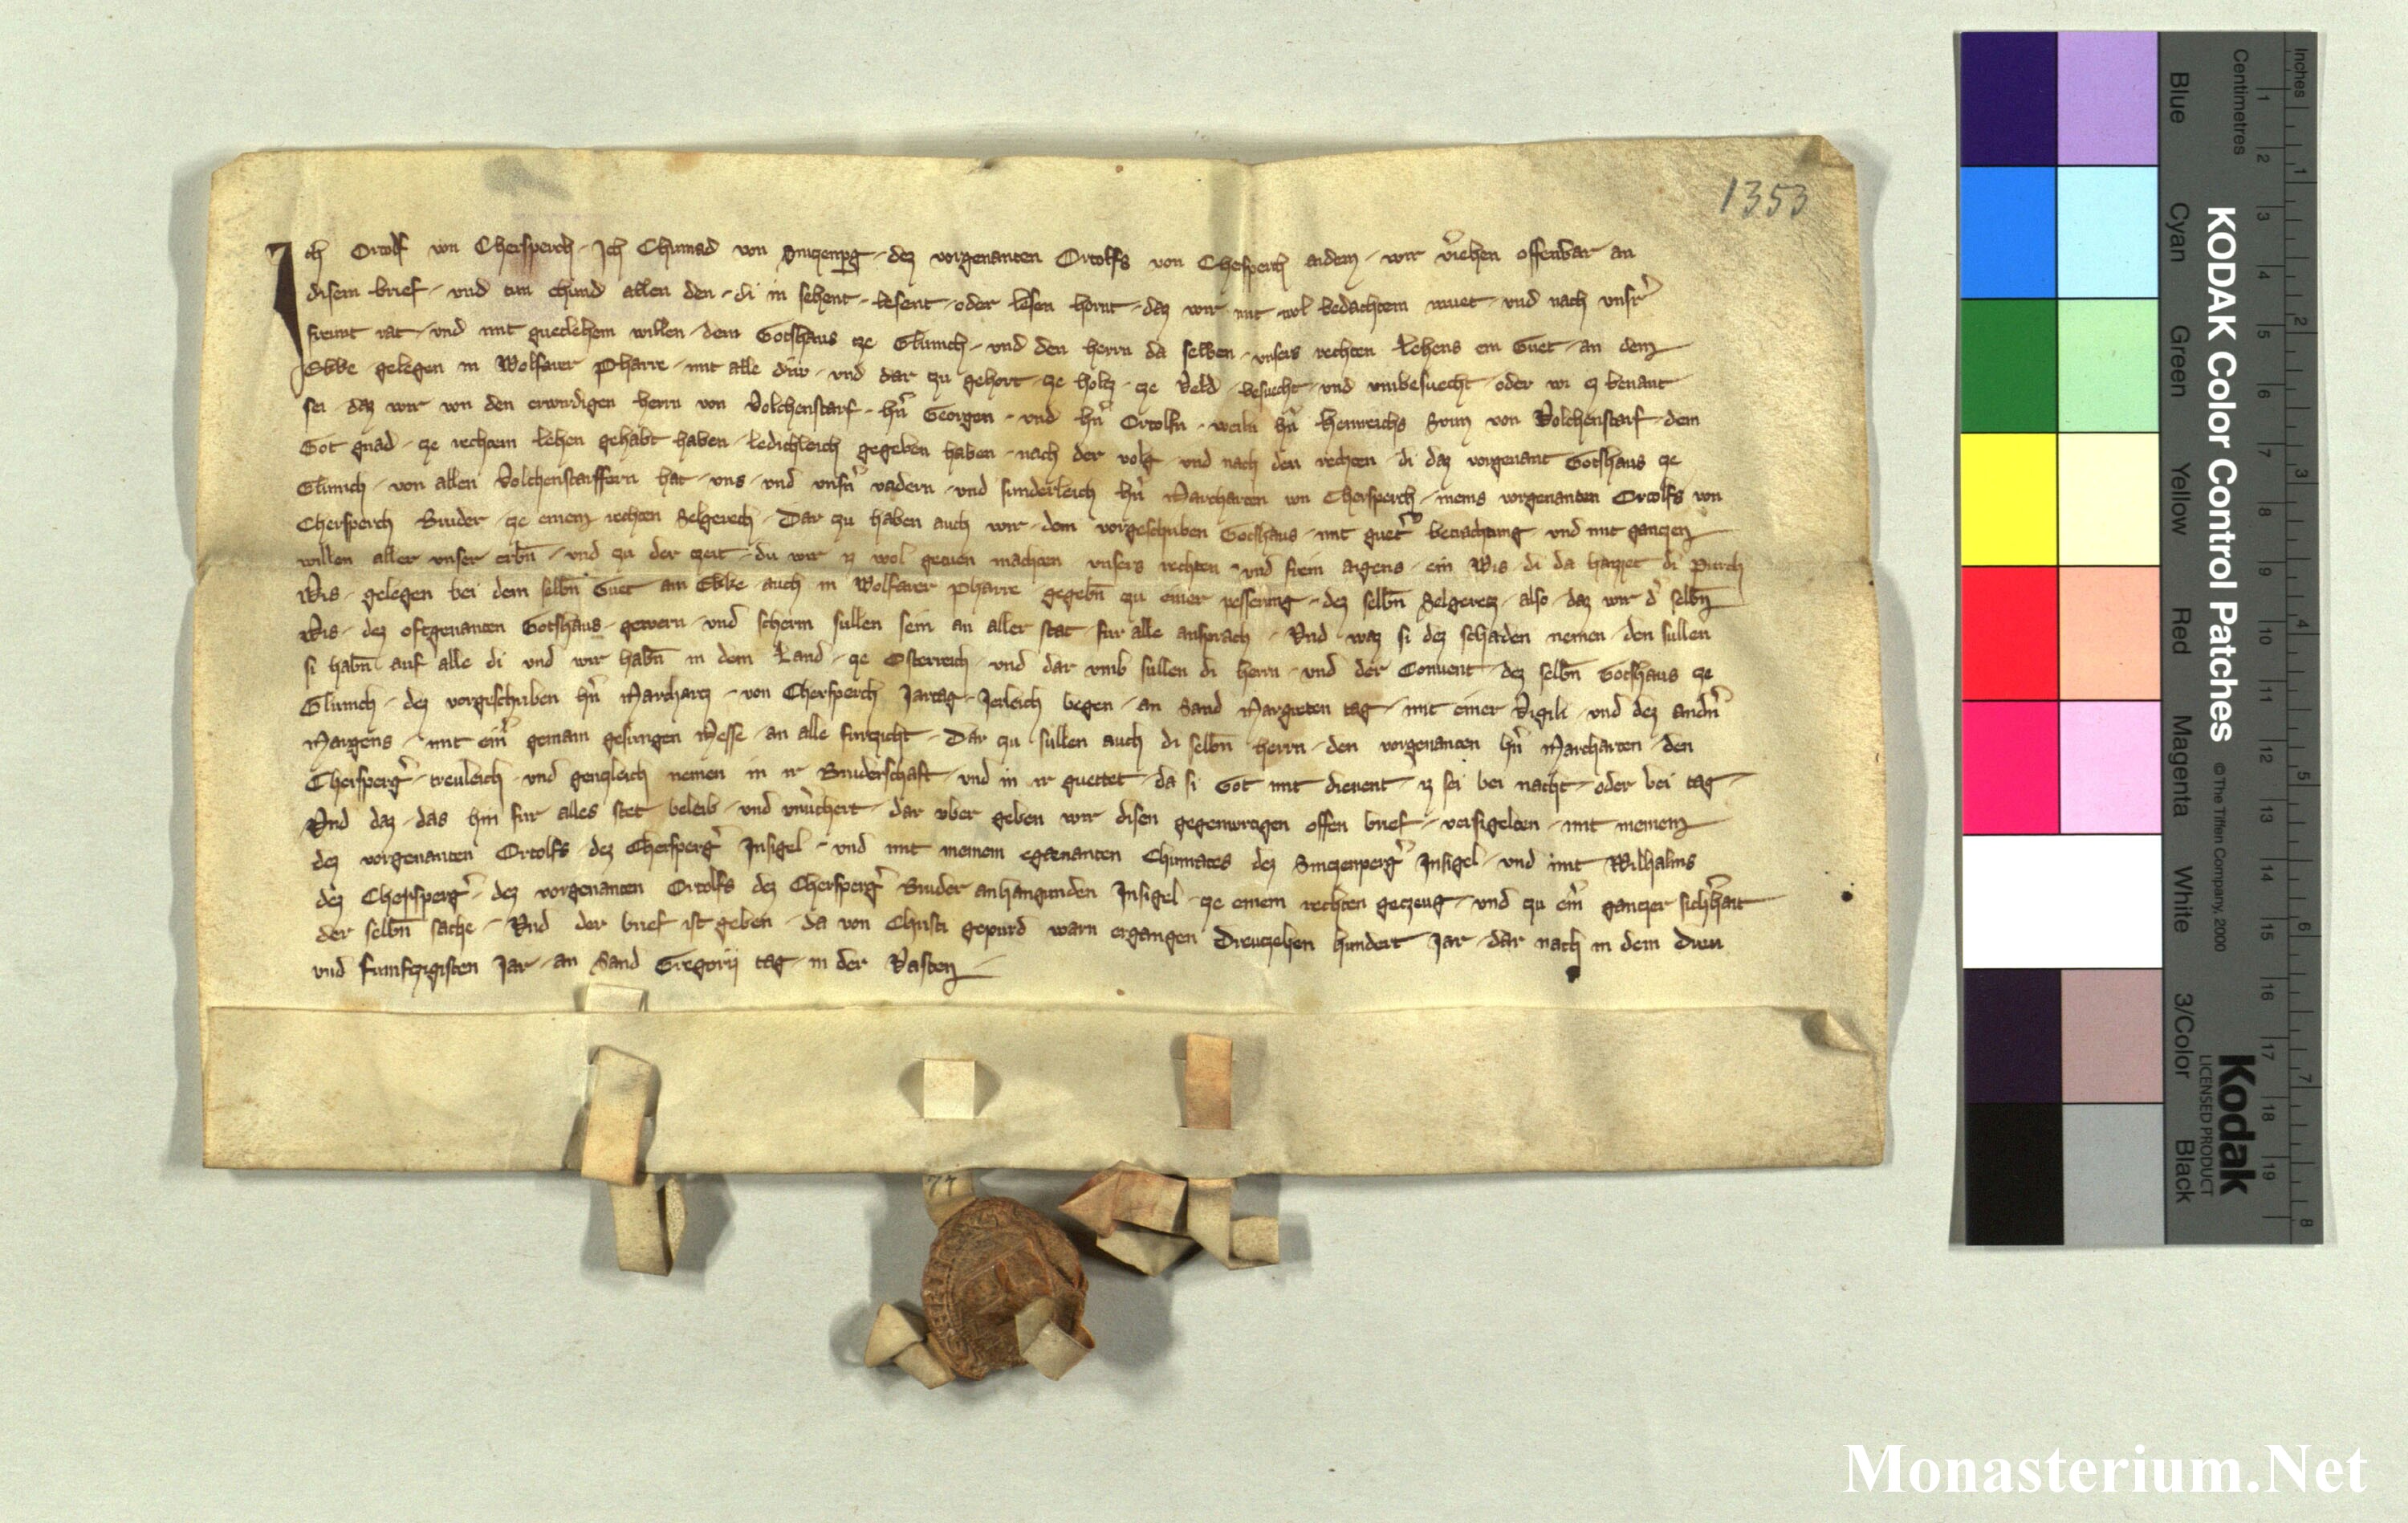 1353
Ich Ortolf von Chersperch Ich Chunrad von Sinczenperg dez vorgenanten Ortolfs von Chersperch aidem wir v̾iehen offenbar an
disem brief und tun chund allen den di in sehent lesent oder lesen hornt daz wir mit wol bedachtem muet und nach unsr̾
freunt rat und mit guetlehem willen dem Gotshaus ze Glunich und den herrn da selben unsers rechten Lehens ein Guet an dem
Ekke gelegen in Wolfarer Pharre mit alle diu und dar zu gehort ze holcz ze Veld besucht und unbesuecht oder wi ez benant
sei daz wir von den erwirdigen herrn von Volchenstarf hn̾ Georgen und hn̾ Ortolfn weiln hn̾ Heinreichs Sun von Volchenstarf dem
Got gnad ze rechtem Lehen gehabt haben ledichleich gegeben haben nach der volg und nach den rechten di daz vorgenant Gotshaus ze
Glunich von allen Volchenstarffern hat uns und unsn̾ vadern und sunderleich hn̾ Marcharten von Chersperch meins vorgenanten Ortolfs von
Chersperch Bruder ze einem rechten Selgerech Dar zu haben auch wir dem vorgeschriben Gotshaus mit guet̾ betrachtung und mit ganczem
willen aller unser erbn̄ und zu der zeit du wir ez wol getuen machten unsers rechten und frein aigens ein Wis di da haizzet di Purch
Wis gelegen bei dem selbn̄ Guet am Ekke auch in Wolfarer Pharre gegebn̄ zu einer pesserung dez selbn̄ Selgeretz also daz wir d̾ selbn̄
Wis dez oftgenanten Gotshaus gewern und scherm sullen sein an aller stat fur alle ansprach Und waz si dez schaden nemen den sullen
si habn̄ auf alle di und wir habn̄ in dem Land ze Osterreich und dar umb sullen di herrn und der Convent dez selbn̄ Gotshaus ze
Glunich dez vorgeschriben hn̾ Marchartz von Chersperch Jartag Jerleich begen an Sand Margreten tag mit einer Vigili und dez andn̾
Margens mit ein̾ gemain gesungen Messe an alle furczicht Dar zu sullen auch di selbn̄ herrn den vorgenanten hn̾ Marcharten den
Chersperg̾ treuleich und genczleich nemen in ir Bruderschaft und in ir guettet da si Got mit dienent ez sei bei nacht oder bei tag
Und daz das hin fur alles stet beleib und unv̾chert dar uber geben wir disen gegenwrtigen offen brief versigelten mit meinem
dez vorgenanten Ortolfs dez Chersperg̾ Insigel und mit meinem egenanten Chunrates dez Sinczenperg̾ Insigel und mit Wilhalms
dez Chersperg̾ dez vorgenanten Ortolfs dez Chersperg̾ Bruder anhangunden Insigel ze einem rechten geczeug und zu ein̾ ganczer sich̾hait
der selbn̄ sache Und der brief ist geben da von Christi gepurd warn ergangen Dreuczehen hundert Jar dar nach in dem Dreu
und funfczigisten Jar an Sand Gregorij tag in der Vasten
KODAK Color Control Patches
© The Tiffen Company, 2000
Kodak
LICENSED PRODUCT
Inches
Centimetres
1 2 3 4 5 6 7 8
1 2 3 4 5 6 7 8 9 10 11 12 13 14 15 16 17 18 19
Blue
Cyan
Green
Yellow
Red
Magenta
White
3/Color
Black
Monasterium.Net